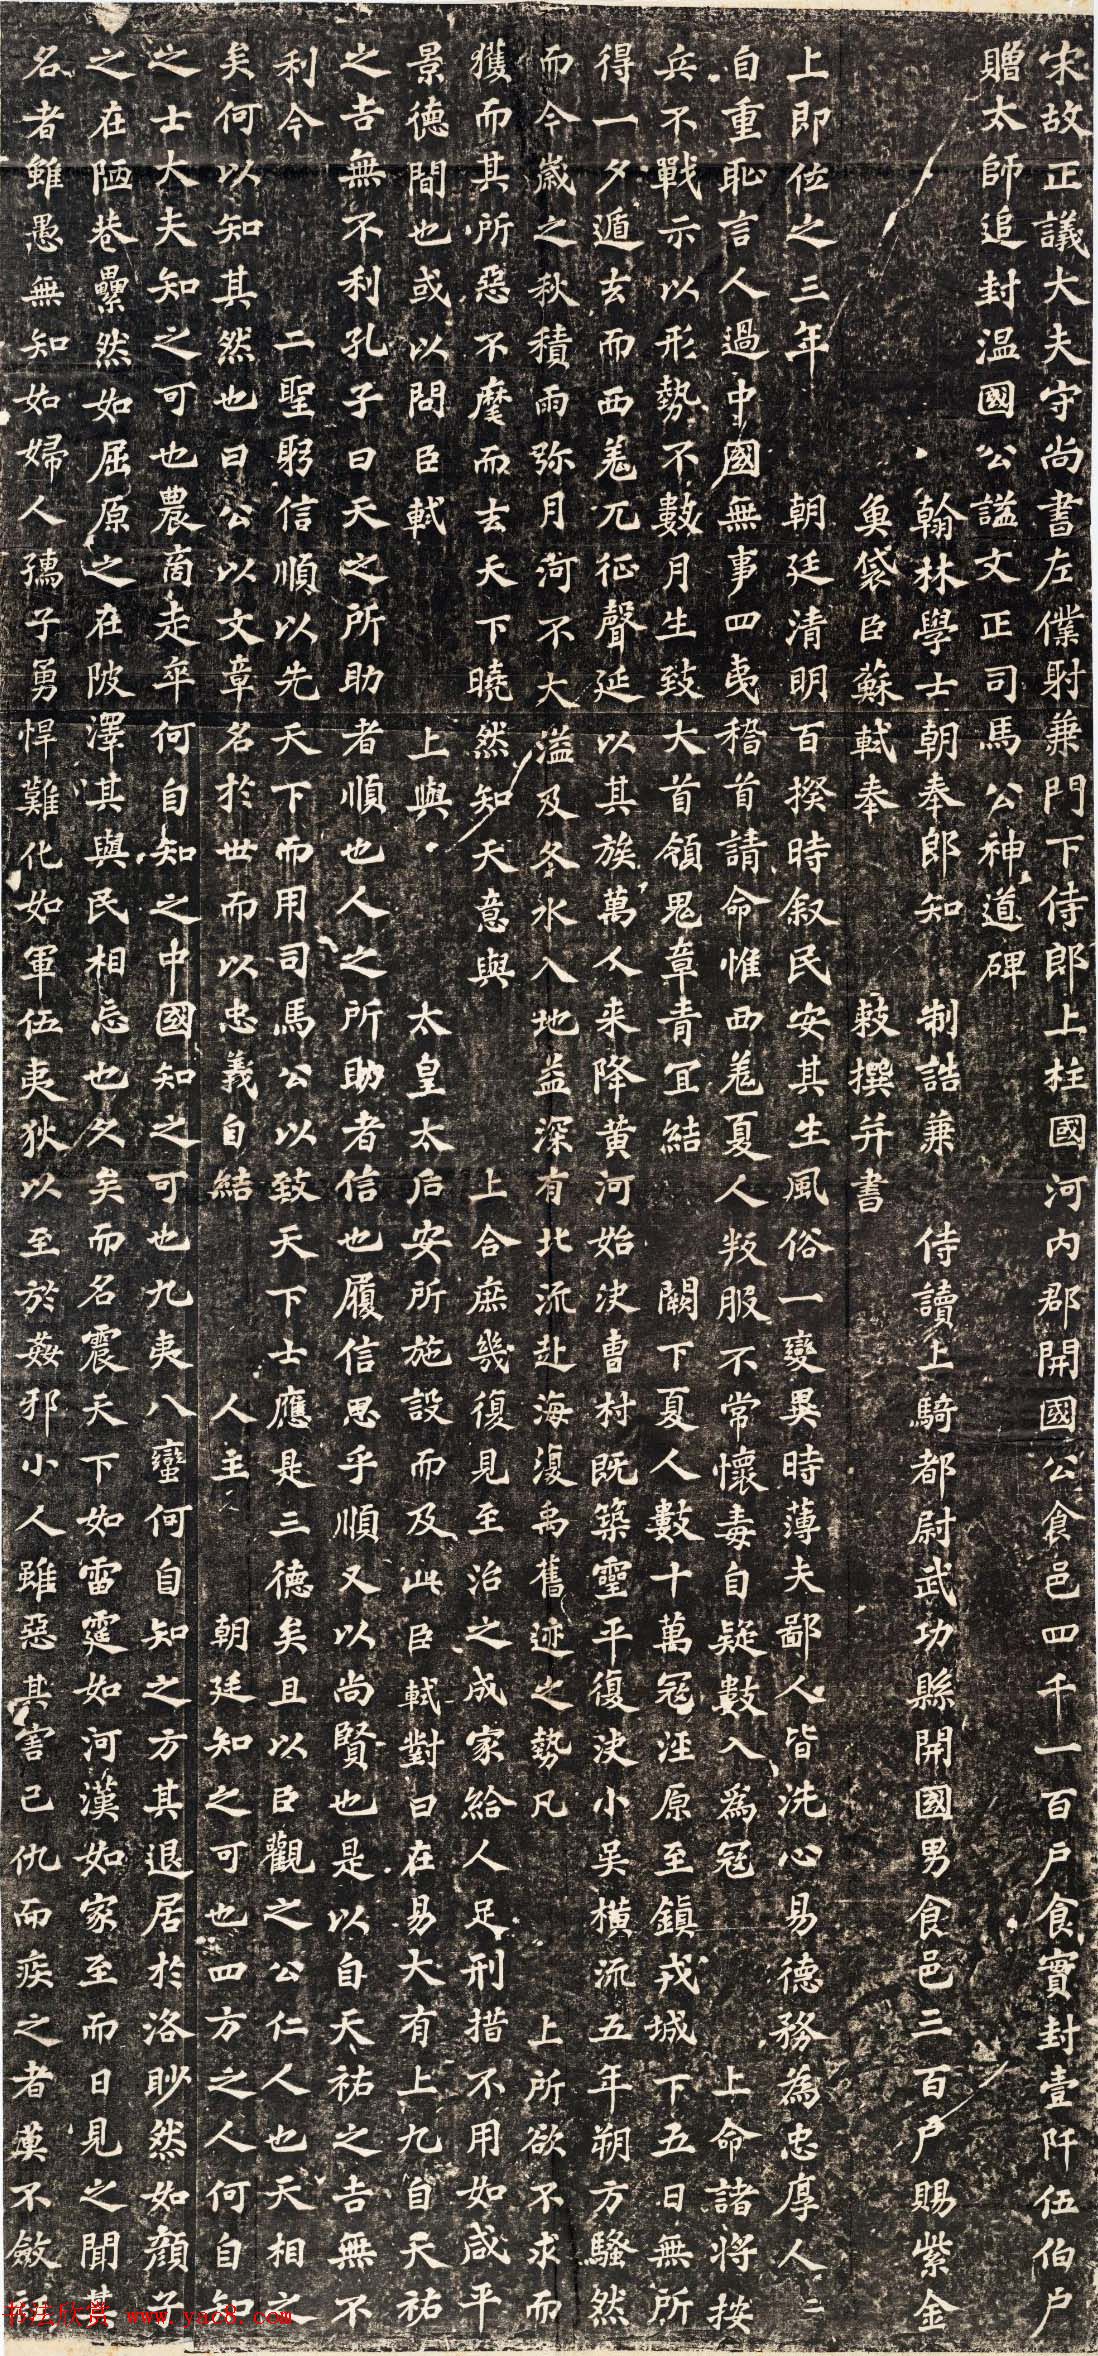 宋故正議大夫守尚書左僕射兼門下侍郎上柱國河內郡開國公食邑四千一百戶食實封壹阡伍伯戶
贈太師追封温國公謚文正司馬公神道碑
翰林學士朝奉郎知 制誥兼 侍讀上騎都尉武功縣開國男食邑三百戶賜紫金
魚袋臣蘇軾奉 敕撰并書
上即位之三年 朝廷清明百揆時叙民安其生風俗一變異時薄夫鄙人皆洗心易德務為忠厚人人
自重耻言人過中國無事四夷稽首請命惟西羗夏人叛服不常懷毒自疑數入為冦 上命諸將按
兵不戰示以形勢不數月生致大首領鬼章青宜結 闕下夏人數十萬冦涇原至鎮戎城下五日無所
得一夕遁去而西羗兀征聲延以其族萬人来降黄河始決曹村既築靈平復決小吴横流五年朔方騷然
而今歲之秋積雨弥月河不大溢及冬水入地益深有北流赴海復禹舊迹之勢凡 上所欲不求而
獲而其所惡不麾而去天下曉然知天意與 上合庶幾復見至治之成家給人足刑措不用如咸平
景德間也或以問臣軾 上與 太皇太后安所施設而及此臣軾對曰在易大有上九自天祐
之吉無不利孔子曰天之所助者順也人之所助者信也履信思乎順又以尚賢也是以自天祐之吉無不
利今 二聖躬信順以先天下而用司馬公以致天下士應是三德矣且以臣觀之公仁人也天相之
矣何以知其然也曰公以文章名於世而以忠義自結 人主 朝廷知之可也四方之人何自知
之士大夫知之可也農商走卒何自知之中國知之可也九夷八蠻何自知之方其退居於洛眇然如顔子
之在陋巷纍然如屈原之在陂澤其與民相忘也久矣而名震天下如雷霆如河漢如家至而日見之聞其
名者雖愚無知如婦人孺子勇悍難化如軍伍夷狄以至於姦邪小人雖惡其害己仇而疾之者莫不斂
书法欣赏 www.yac8.com